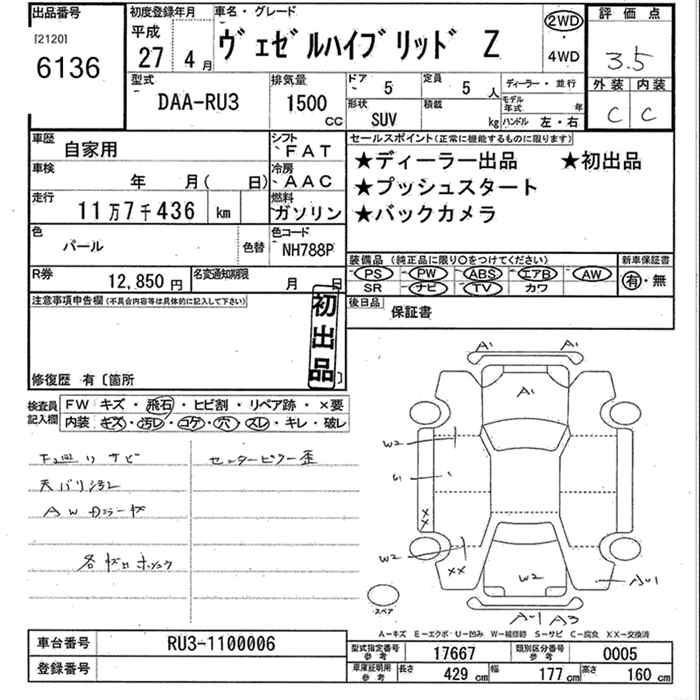 出品番号 初度登録年月 車名・グレード 評価点
[2120] 平成 ヴェゼルハイブリッド Z 2WD
6136 27年 4月 ・ 3.5
4WD
型式 排気量 ドア 5 定員 5人 ディーラー・並行 外装 内装
DAA-RU3 1500cc 形状 SUV 積載 kg モデル年式 年 C C
ハンドル 左・右
車歴 自家用 シフト FAT セールスポイント(正常に機能するものに限ります)
車検 年 月( 日) 冷房 AAC ★ディーラー出品 ★初出品
走行 11万7千436 km 燃料 ガソリン ★プッシュスタート
★バックカメラ
色 パール 色替 色コード NH788P
装備品(純正品に限り○をつけてください) 新車保証書
R券 12,850円 名変通知期限 月 日 PS PW ABS エアB AW 有・無
SR ナビ TV カワ
注意事項申告欄(不具合内容等は具体的に記入して下さい) 初出品 後日品 保証書
修復歴 有〔箇所 〕
検査員記入欄 FW キズ・飛石・ヒビ割・リペア跡・×要
内装 キズ・汚レ・コゲ・穴・スレ・キレ・破レ
センターピラー歪
天バリ汚レ
AW
各
A1 A1
A1
W2
W2
XX
XX
W2
A-1 A3
スペア
A-キズ E-エクボ・U-凹み W-補修跡 S-サビ C-腐食 XX-交換済
車台番号 RU3-1100006 型式指定番号 参考 17667 類別区分番号 参考 0005
登録番号 車庫証明用 参考 長さ 429 cm 幅 177 cm 高さ 160 cm